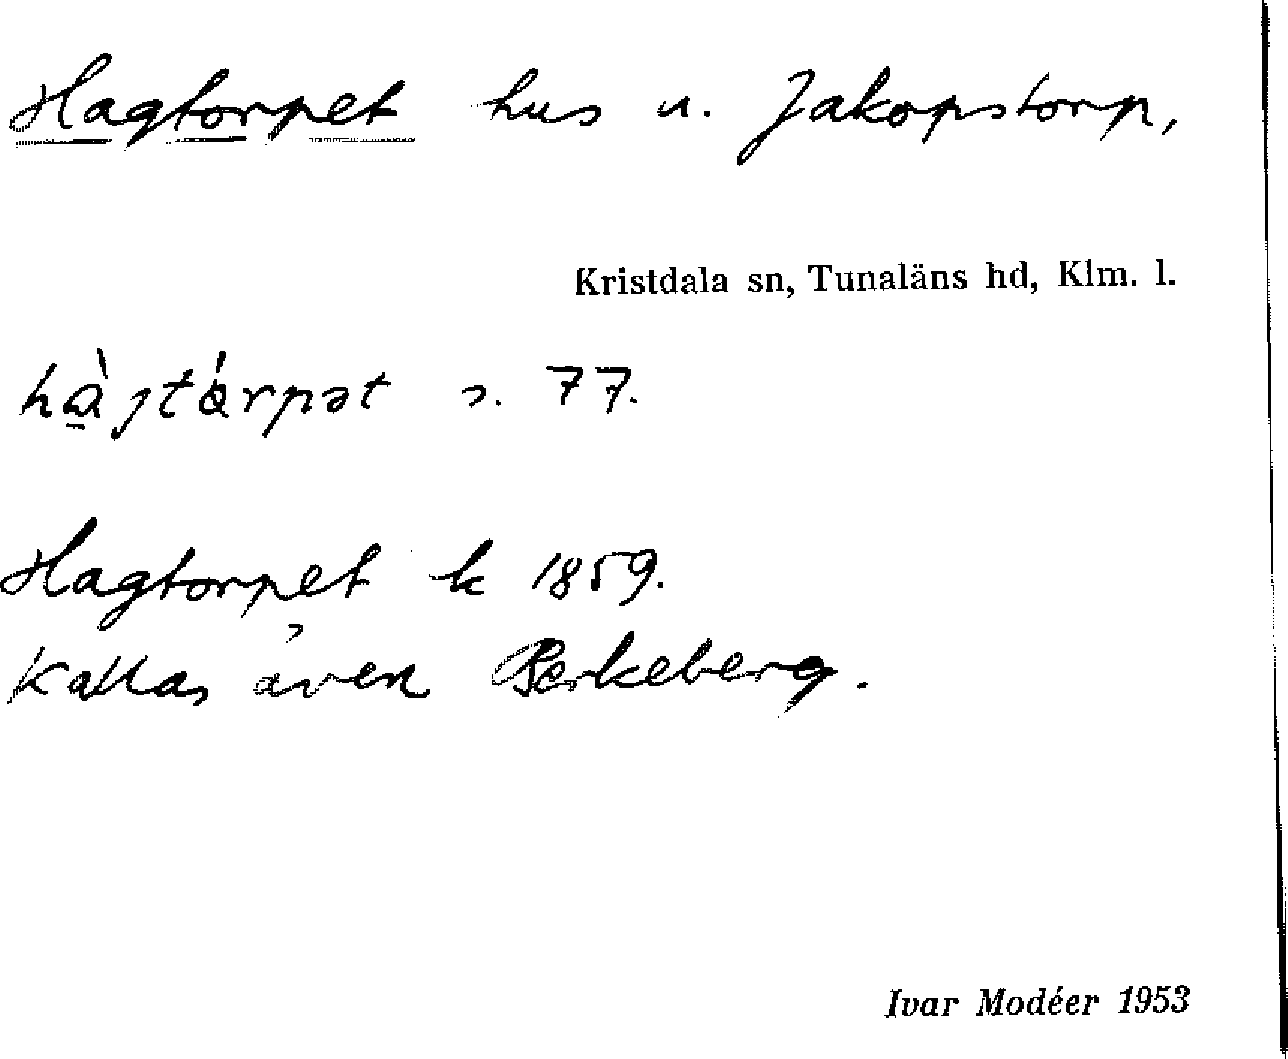 Hagtorpet hus u. Jakopstorp,
Kristdala sn, Tunaläns hd, Klm. l.
hàɡtórpət s. 77.
Hagtorpet k 1859.
Kallas även Perkeberg.
Ivar Modéer 1953